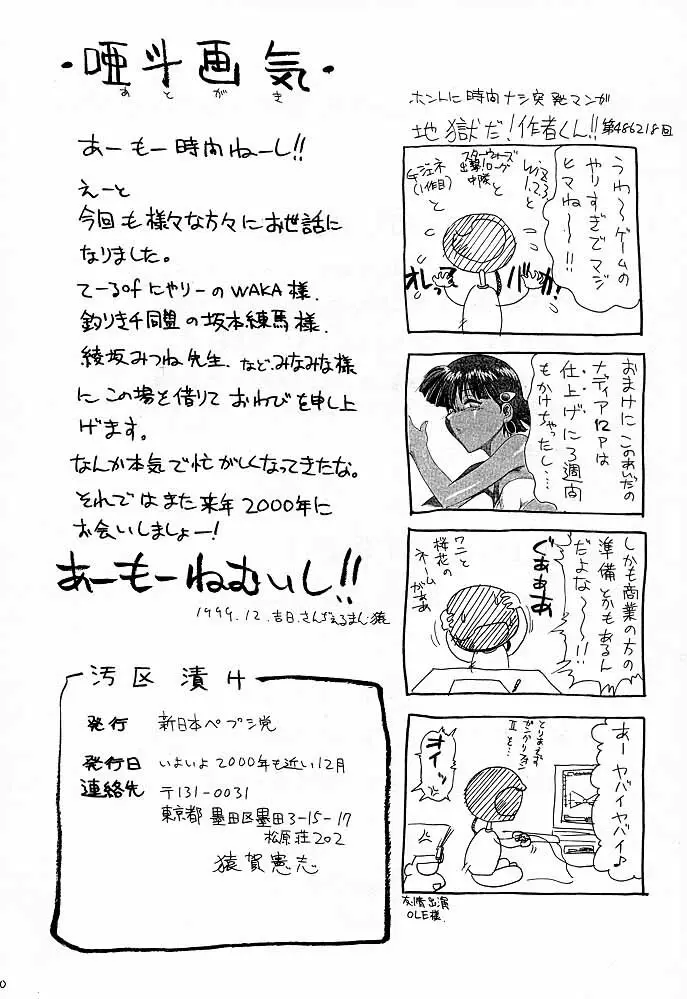 ・唖斗画気・
あとがき
あーもー時間ねーし!!
えーと
今回も様々な方々にお世話に
なりました。
てーるofにゃりーのWAKA様.
釣りキチ同盟の坂本練馬様.
綾坂みつね先生.などみなみな様
にこの場を借りておわびを申し上
げます。
なんか本気で忙がしくなってきたな。
それではまた来年2000年に
お会いしましょー!
あーもーねむいし!!
1999.12.吉日.さんぢぇるまん猿
汚区漬け
発行 新日本ペプシ党
発行日 いよいよ2000年も近い12月
連絡先 〒131-0031
東京都 墨田区墨田3-15-17
松原荘202
猿賀憲志
ホントに時間ナシ突発マンガ
地獄だ!作者くん!!第486218回
うわ〜ゲームの
やりすぎでマジ
ヒマね〜〜!!
Wiz
1.2.3
と
スターウォーズ
出撃!ローグ
中隊
と
デジェネ
(1作目)
と
バカ。
オレって
おまけにこのあいだの
ナディア12Pは
仕上げに3週間
もかけちゃったし…
しかも商業の方の
準備とかもあるん
だよな〜〜!!
ぐあああ
ワニと
桜花の
ネームがああ
あーヤバイヤバイ♪
とりあえず
Ⅱを…
オイッ
友情出演
OLE様.
0